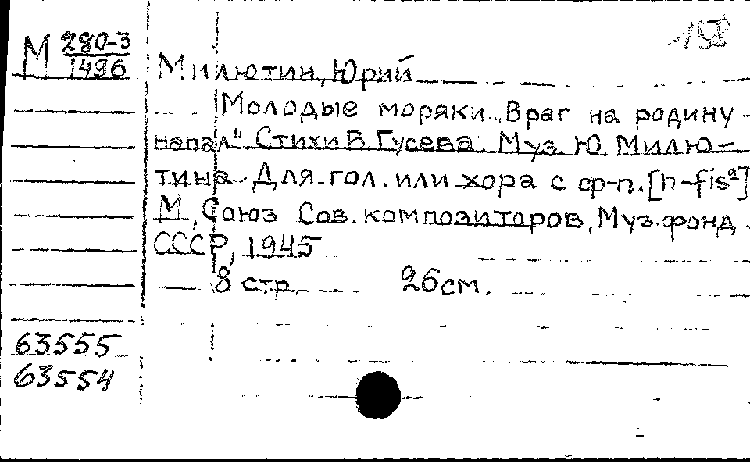 158
М 280-3
1496
Милютин, Юрий
Молодые моряки „Враг на родину
напал" Стихи В. Гусева. Муз. Ю. Милю-
тина. Для гол. или хора с ф-п. [h-fis²]
М., Союз Сов. композиторов, Муз. фонд
СССР, 1945
8 стр. 26 см.
63555
63554